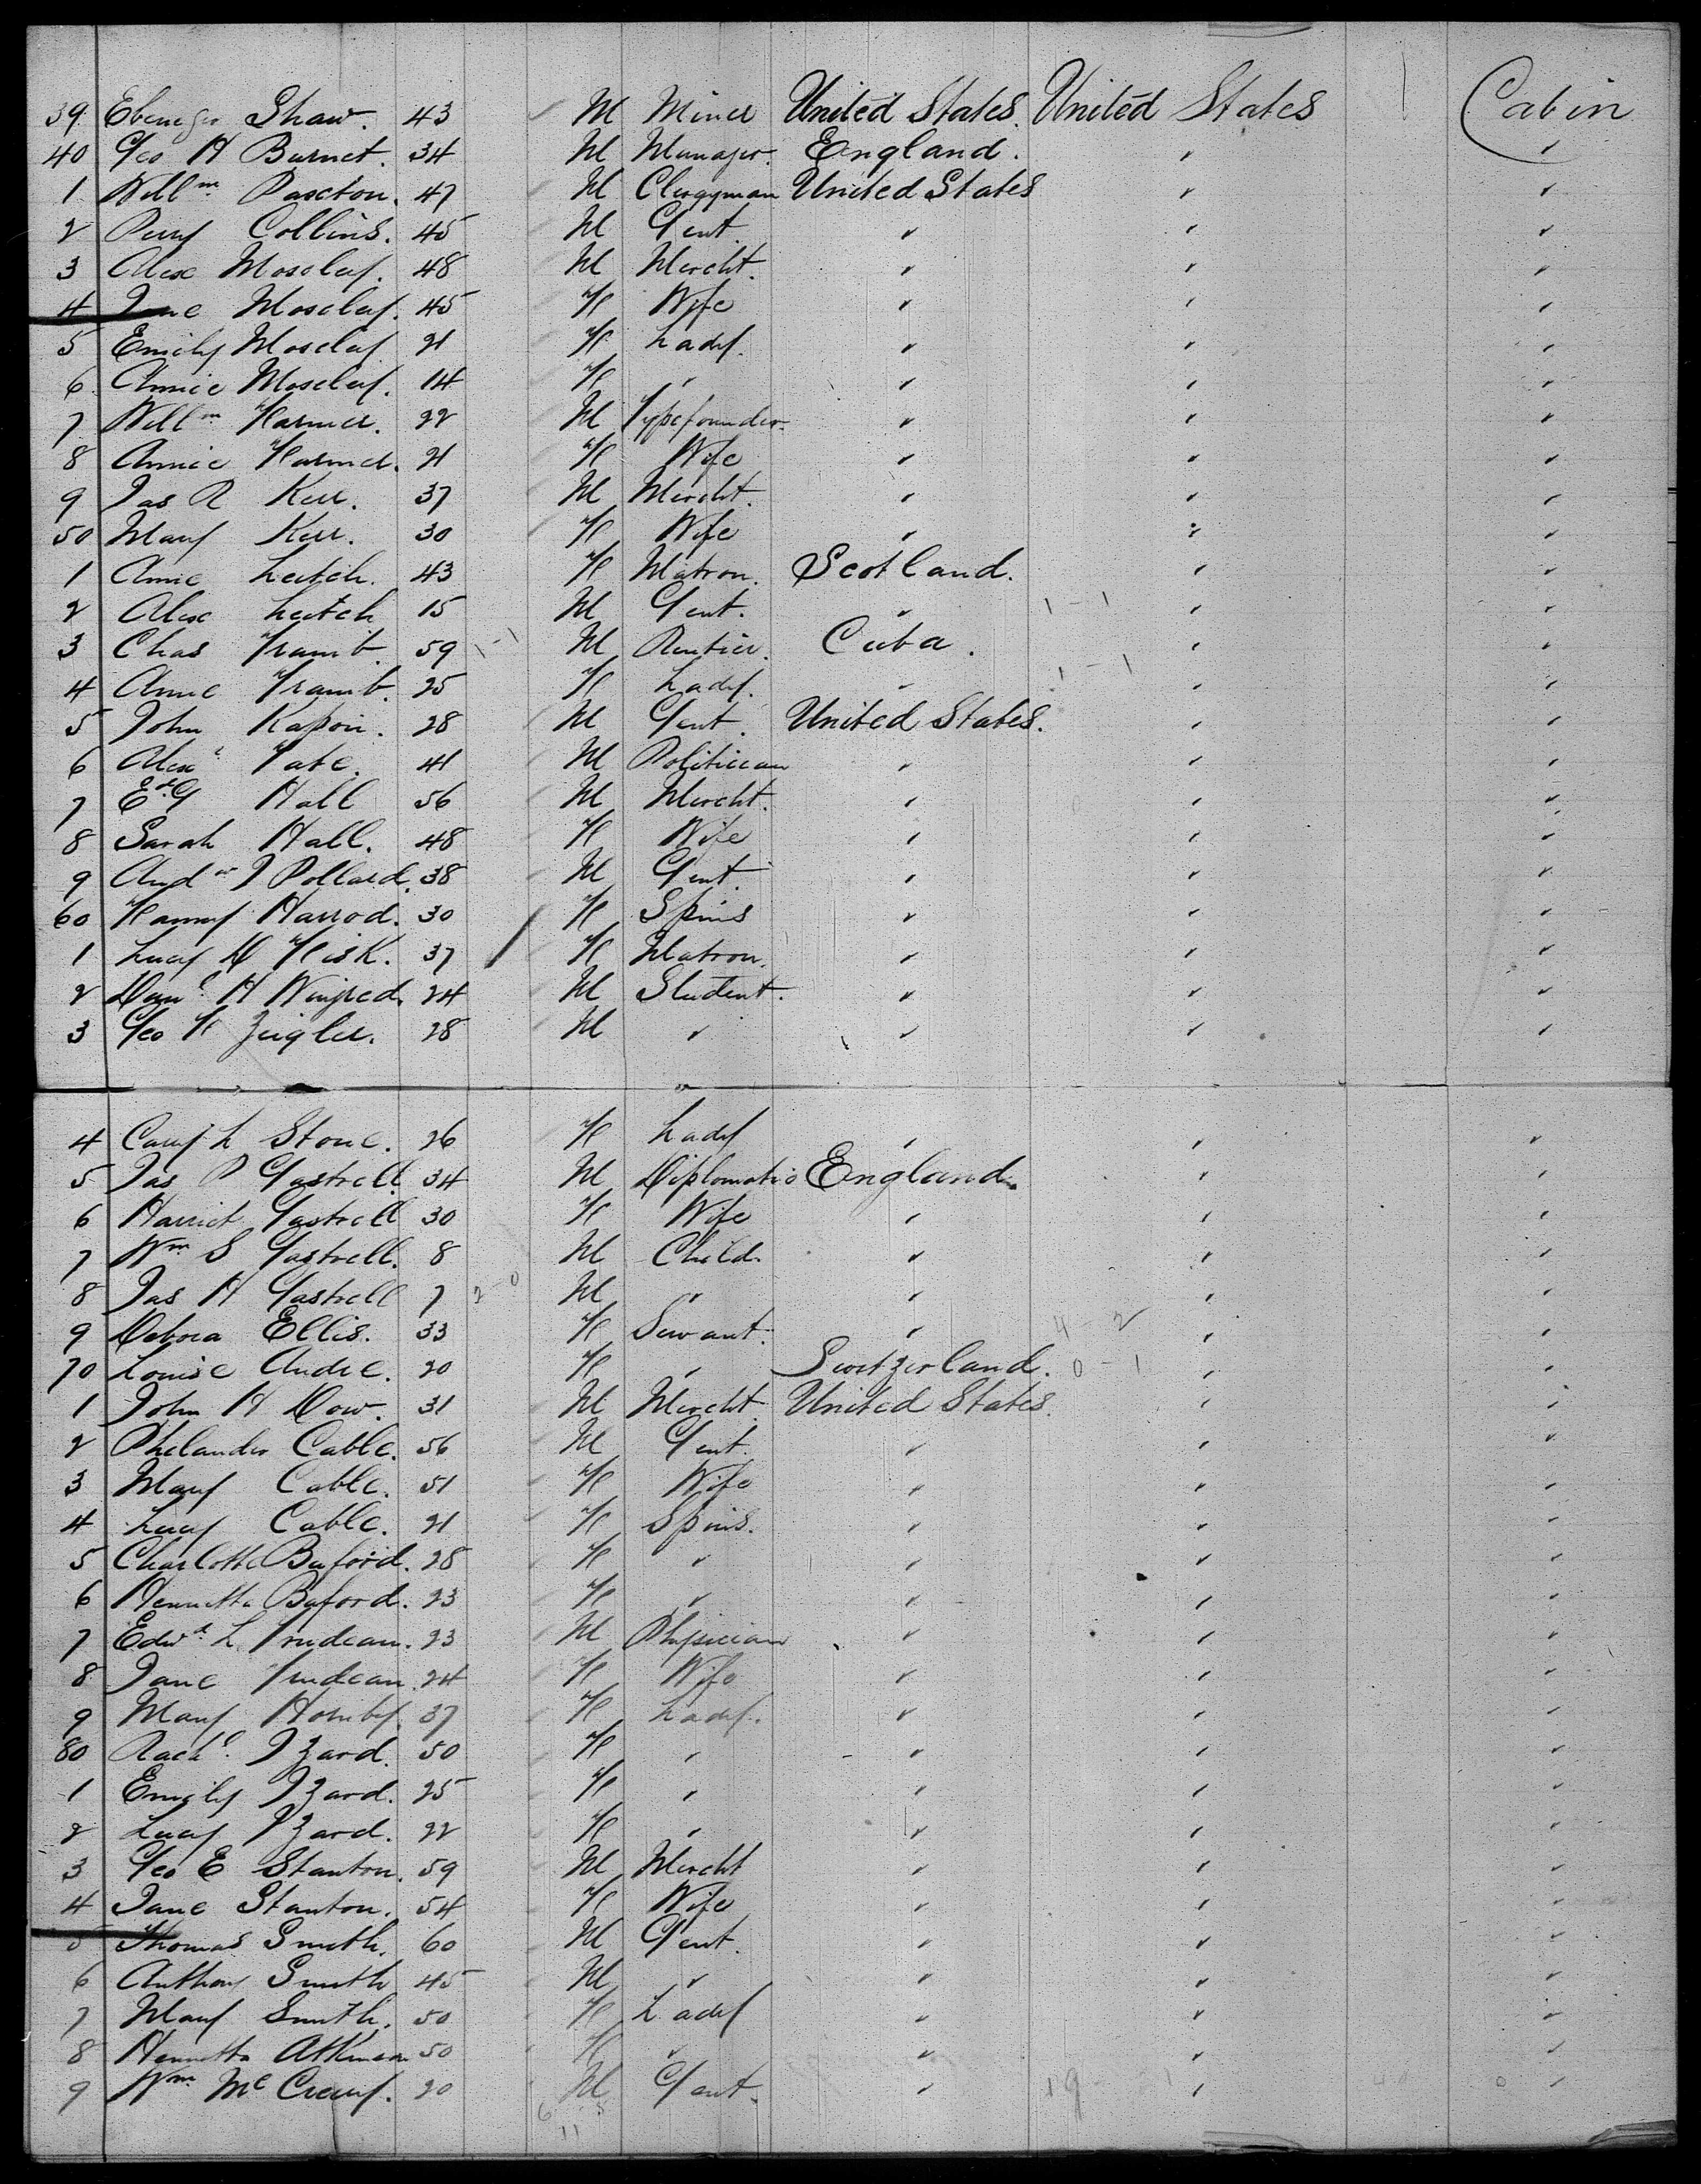 39 Ebenezer Shaw. 43 M Miner United States. United States Cabin
40 Geo H Burnet. 34 M Manager. England. " "
1 Willm Paxton. 47 M Clergyman United States " "
2 Perry Collins. 45 M Gent. " " "
3 Alex Moseley. 48 M Mercht. " " "
4 Jane Moseley. 45 F Wife " " "
5 Emily Moseley 21 F Lady. " " "
6 Annie Moseley. 14 F " " " "
7 Willm Farmer. 22 M Typefounder. " " "
8 Annie Farmer. 21 F Wife " " "
9 Jas R Kerr. 37 M Mercht. " " "
50 Mary Kerr. 30 F Wife " " "
1 Anne Leitch. 43 F Matron. Scotland. " "
2 Alex Leitch 15 M Gent. " " "
3 Chas 59 M Rentier. Cuba. " "
4 Anne 25 F Lady. " " "
5 John 28 M Gent. United States. " "
6 Alexr Tate. 41 M Politician " " "
7 Ed G Hall 56 M Mercht. " " "
8 Sarah Hall. 48 F Wife " " "
9 Andw J Pollard. 38 M Gent. " " "
60 Fanny Harrod. 30 F Spins " " "
1 Lucy M Fisk. 37 F Matron. " " "
2 Danl H 24 M Student. " " "
3 Geo F Zeigler. 28 M " " " "
4 Cary L Stone. 26 F Lady " " "
5 Jas P Gastrell 34 M Diplomatic England. " "
6 Harriet Gastrell 30 F Wife " " "
7 Wm S Gastrell. 8 M Child. " " "
8 Jas H Gastrell 7 M " " " "
9 Debora Ellis. 33 F Servant. " " "
70 Louise Andre. 20 F " Switzerland. " "
1 John H Dow. 31 M Mercht. United States. " "
2 Philander Cable. 56 M Gent. " " "
3 Mary Cable. 51 F Wife " " "
4 Lucy Cable. 21 F Spins. " " "
5 Charlotte Buford. 28 F " " " "
6 Hennetta Buford. 23 F " " " "
7 Edwd. L Trudeau. 23 M Physician " " "
8 Jane Trudeau. 24 F Wife " " "
9 Mary Hornby. 37 F Lady. " " "
80 Rachl. Izard. 50 F " " " "
1 Emily Izard. 25 F " " " "
2 Lucy Izard. 22 F " " " "
3 Geo E Stanton. 59 M Mercht " " "
4 Jane Stanton. 54 F Wife " " "
5 Thomas Smith. 60 M Gent. " " "
6 Anthony Smith 45 M " " " "
7 Mary Smith. 50 F Lady " " "
8 Hennetta Atkinson 50 F " " " "
9 Wm Mc Creery. 20 M Gent. " " "